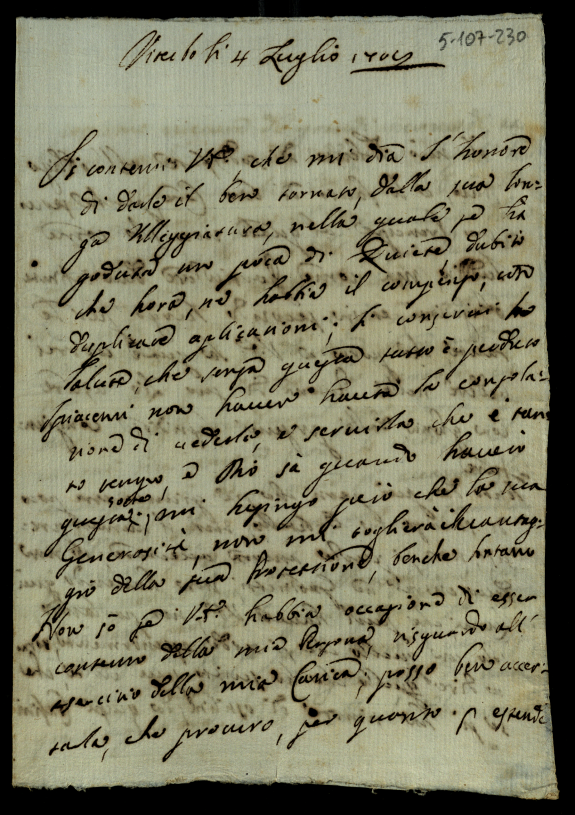 5-107-230
li 4 Luglio
Si contenti V.S. che mi dia l'honore
di darle il ben tornato, dalla sua lon-
ga Villeggiatura, nella quale se ha
goduto un poco di Quiete, dubito
che hora, ne habbia il compenso, con
duplicate aplicationi; si conservi in
salute, che senza questa tutto è perduto
spiacemi non haver havuta la consola-
tione di vederla, e servirla che è tan
to tempo, e Dio sà quando haverò
questa sorte; mi lusingo però che la sua
Generosità, non mi toglierà il vantag-
gio della sua Protettione, benche lontano
Non sò se V.S. habbia occasione di esser
contento della mia Persona, risguardo all'
esercitio della mia Carica, posso ben accer-
tarla, che procuro, per quanto si estende